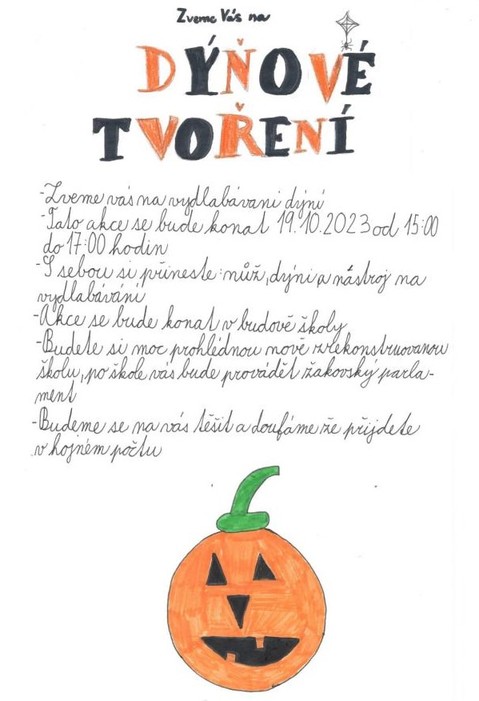 Zveme Vás na
DÝŇOVÉ
TVOŘENÍ
-Zveme vás na vydlabávani dýní
-Tato akce se bude konat 19.10.2023 od 15:00
do 17:00 hodin
-S sebou si přineste: nůž, dýni a nástroj na
vydlabávání
-Akce se bude konat v budově školy
-Budete si moc prohlédnou nově zrekonstruovanou
školu, po škole vás bude provádět žákovský parla-
ment
-Budeme se na vás těšit a doufáme že přijdete
v hojném počtu